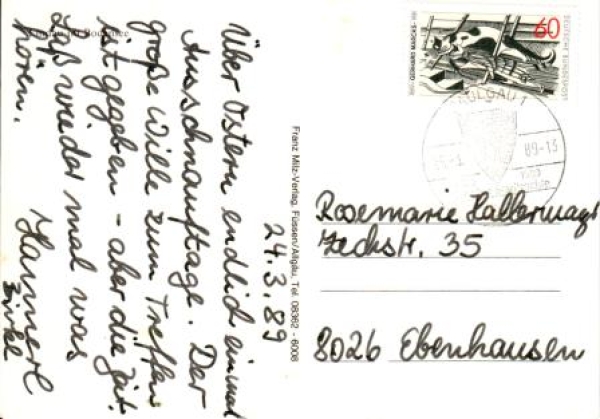 24.3.89
Über Ostern endlich einmal
Ausschnauftage. Der
große Wille zum Treffen
ist gegeben - aber die Zeit.
Laß wieder mal was
hören.
Hannerl
Franz Milz-Verlag, Füssen/Allgäu, Tel. 08362 - 6008
60
DEUTSCHE BUNDESPOST
GERHARD MARCKS
SAULGAU 1
89-13
Rosemarie Hallermayr
Zechstr. 35
8026 Ebenhausen